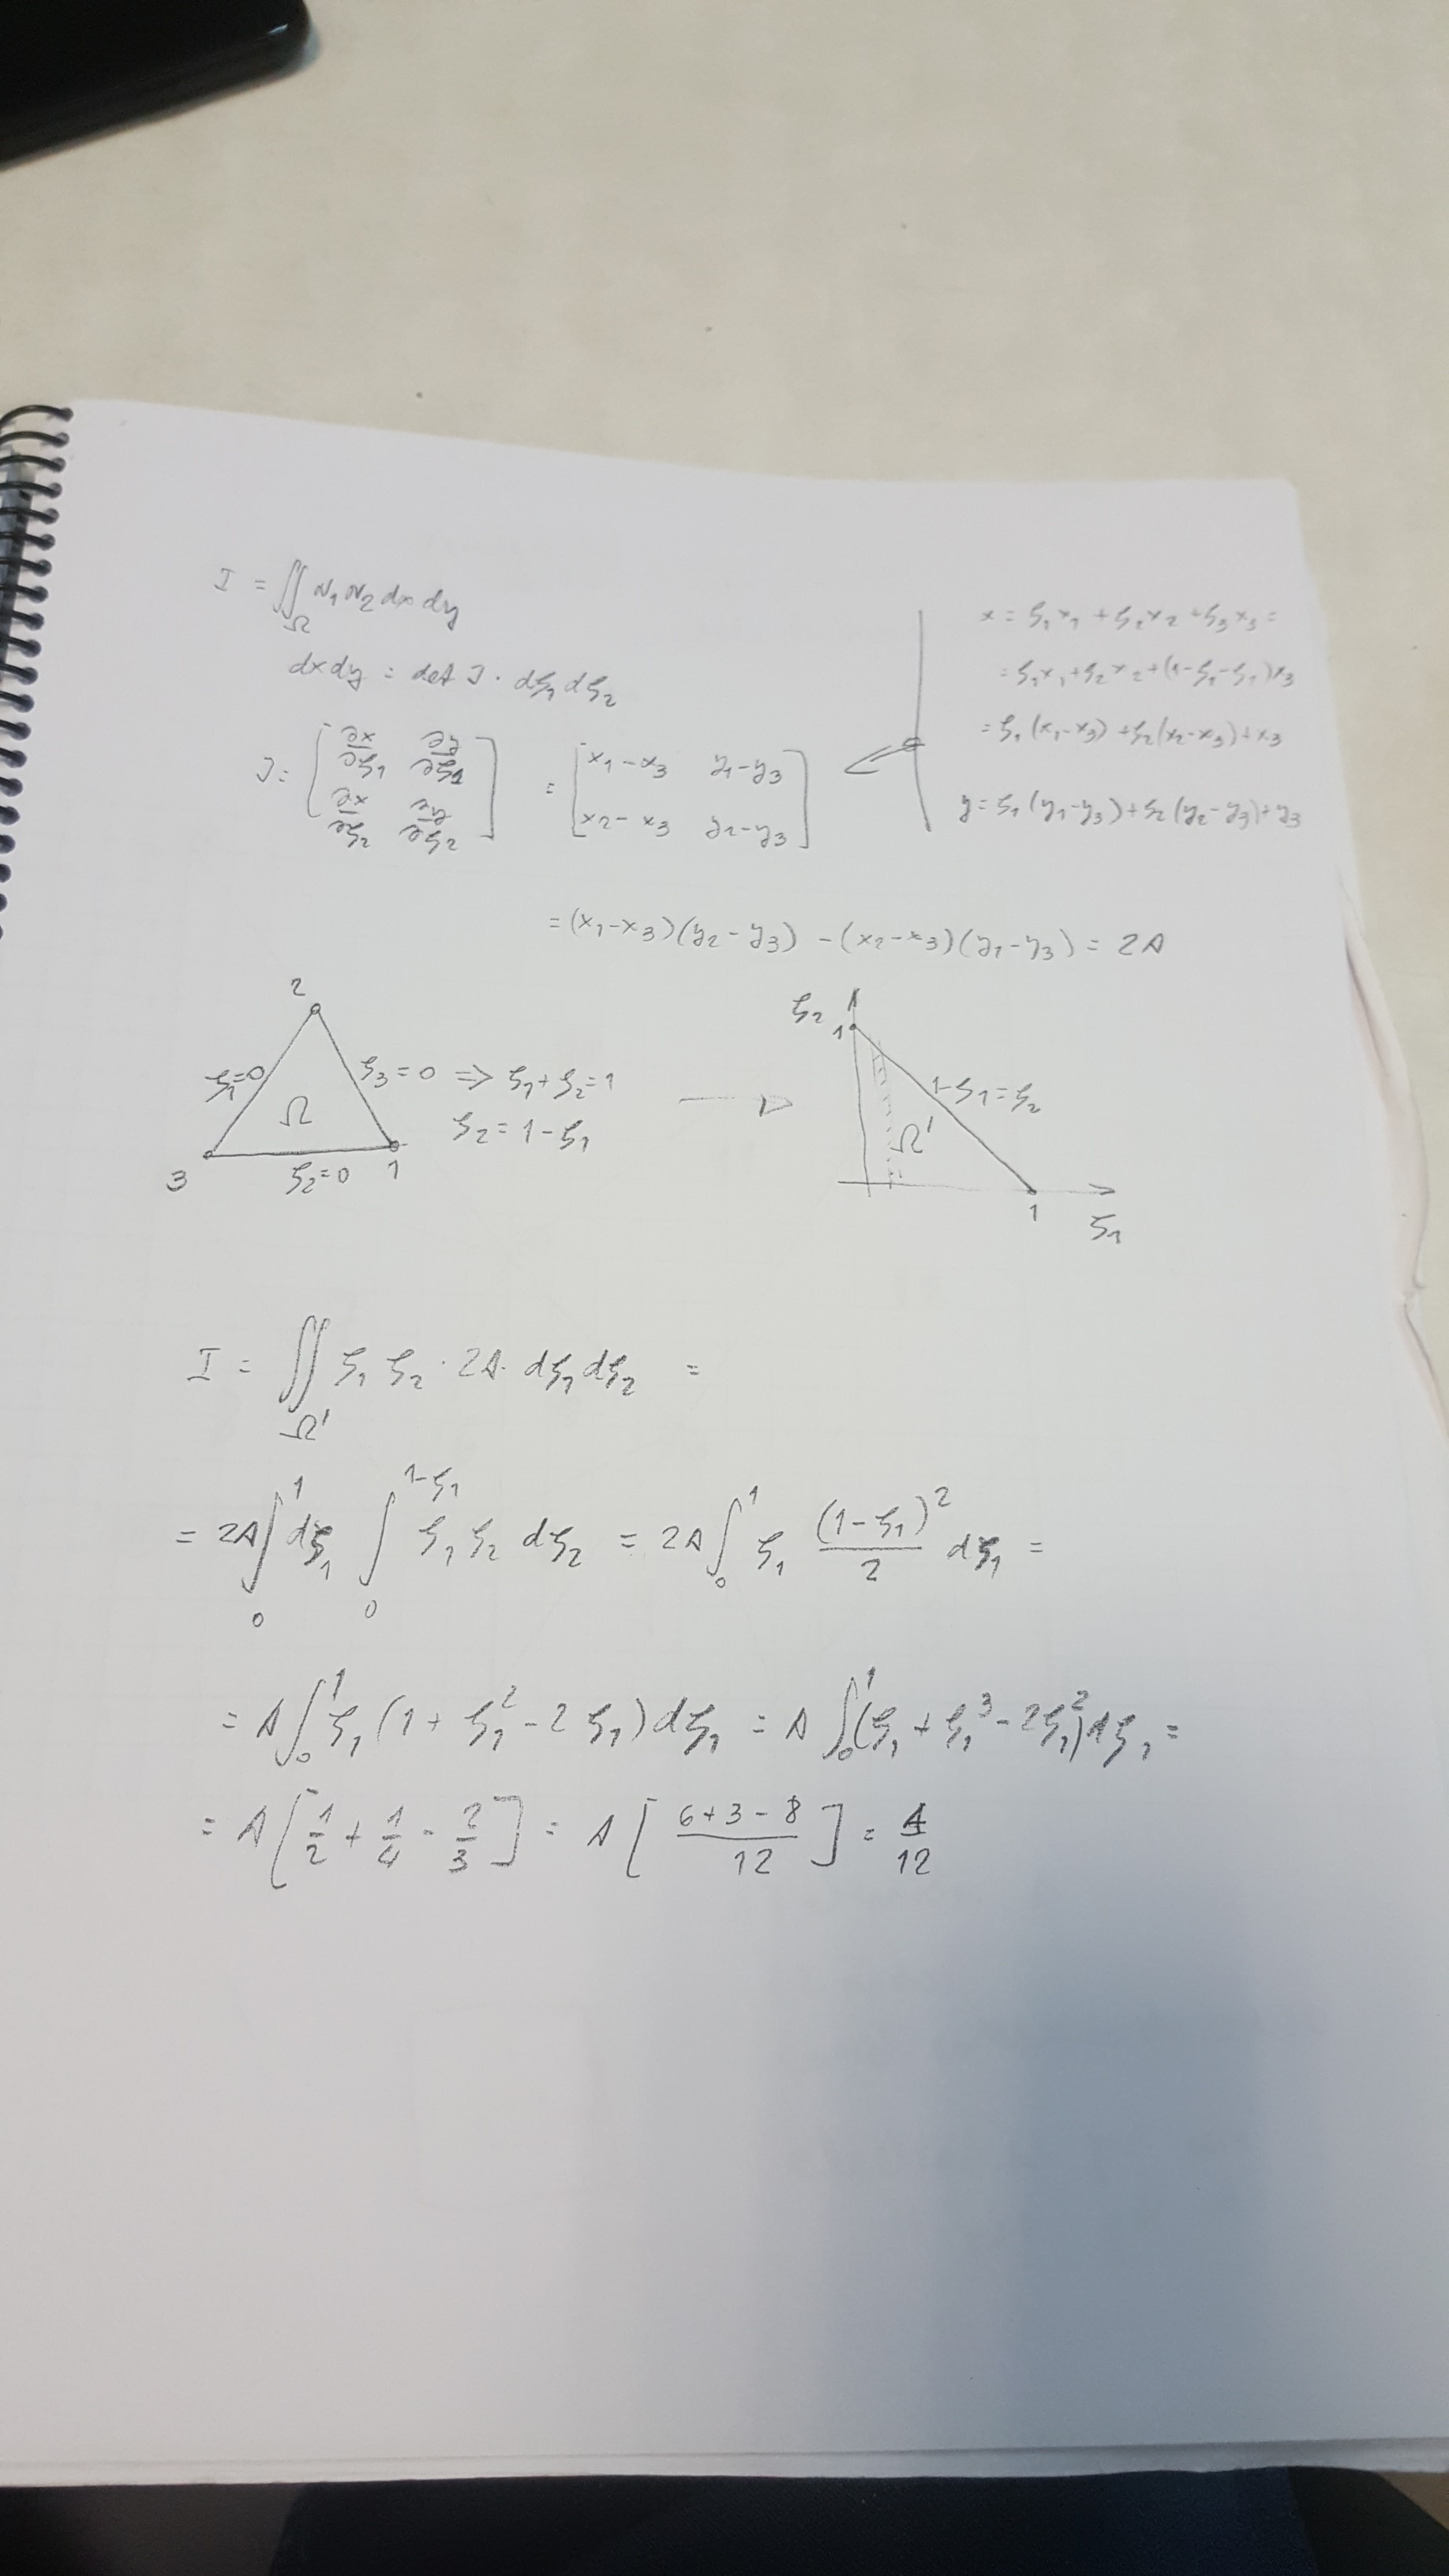 I = ∬_Ω N₁ N₂ dx dy
dxdy = det J · dξ₁ dξ₂
J = [ ∂x/∂ξ₁ ∂y/∂ξ₁ ; ∂x/∂ξ₂ ∂y/∂ξ₂ ] = [ x₁-x₃ y₁-y₃ ; x₂-x₃ y₂-y₃ ]
x = ξ₁x₁ + ξ₂x₂ + ξ₃x₃ =
= ξ₁x₁ + ξ₂x₂ + (1-ξ₂-ξ₁)x₃
= ξ₁(x₁-x₃) + ξ₂(x₂-x₃) + x₃
y = ξ₁(y₁-y₃) + ξ₂(y₂-y₃) + y₃
= (x₁-x₃)(y₂-y₃) - (x₂-x₃)(y₁-y₃) = 2A
2
ξ₁=0
Ω
ξ₃=0 ⇒ ξ₁+ξ₂=1
ξ₂ = 1-ξ₁
3
ξ₂=0
1
ξ₂
1
1-ξ₁=ξ₂
Ω'
1
ξ₁
I = ∬_Ω' ξ₁ ξ₂ · 2A · dξ₁ dξ₂ =
= 2A ∫₀¹ dξ₁ ∫₀^(1-ξ₁) ξ₁ ξ₂ dξ₂ = 2A ∫₀¹ ξ₁ (1-ξ₁)²/2 dξ₁ =
= A ∫₀¹ ξ₁ (1 + ξ₁² - 2ξ₁) dξ₁ = A ∫₀¹ (ξ₁ + ξ₁³ - 2ξ₁²) dξ₁ =
= A [ 1/2 + 1/4 - 2/3 ] = A [ (6+3-8)/12 ] = A/12